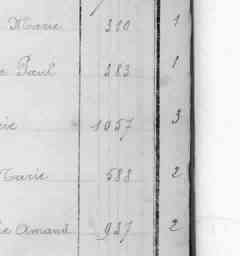 Marie 310 1
Paul 383 1
rie 1057 3
Marie 588 2
ie Amand 937 2